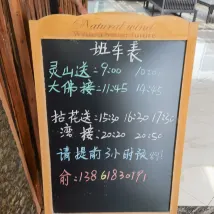 Natural wind
班车表
灵山送:9:00 10:00
大佛接:11:45 14:45
拈花送:15:30 16:30 17:30
湾 接:20:20 20:50
请提前3小时预
俞:13861830191